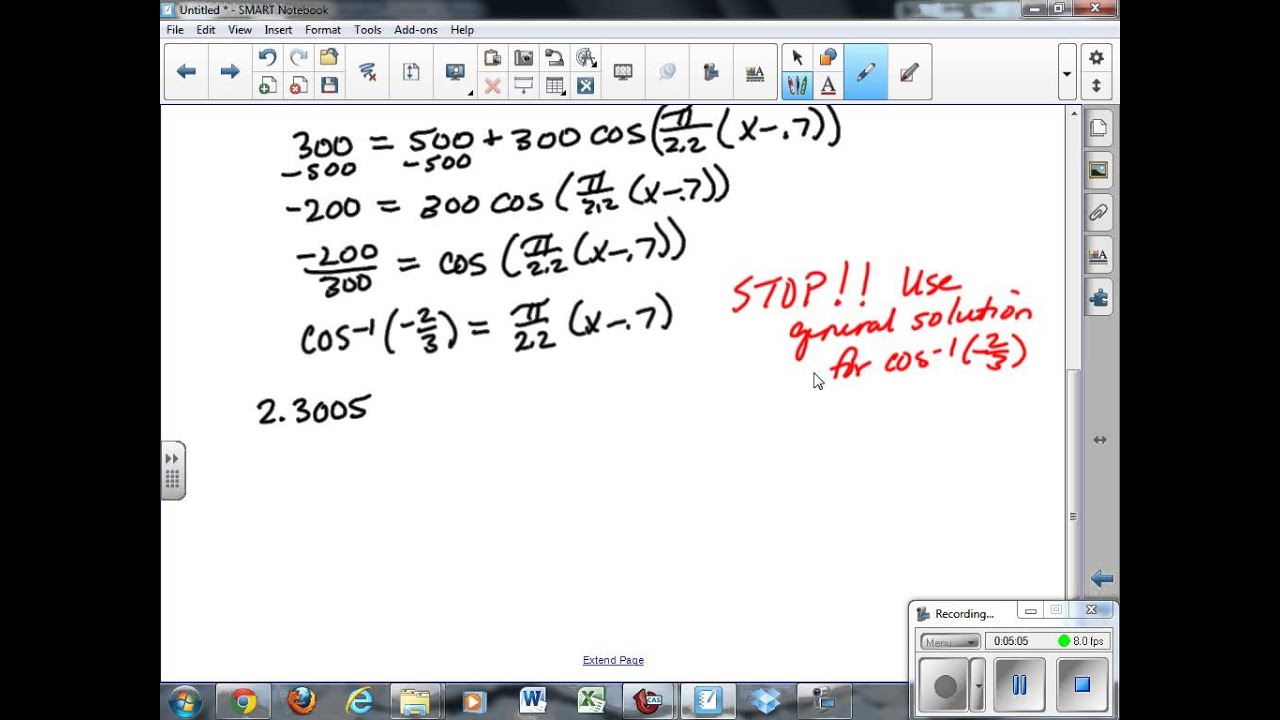 Untitled * - SMART Notebook
File Edit View Insert Format Tools Add-ons Help
300 = 500 + 300 cos(π/2.2 (x-.7))
-500 -500
-200 = 300 cos (π/2.2 (x-.7))
-200/300 = cos (π/2.2 (x-.7))
cos⁻¹(-2/3) = π/2.2 (x-.7)
STOP!! Use
general solution
for cos⁻¹(-2/3)
2.3005
Extend Page
Recording...
Menu 0:05:05 8.0 fps